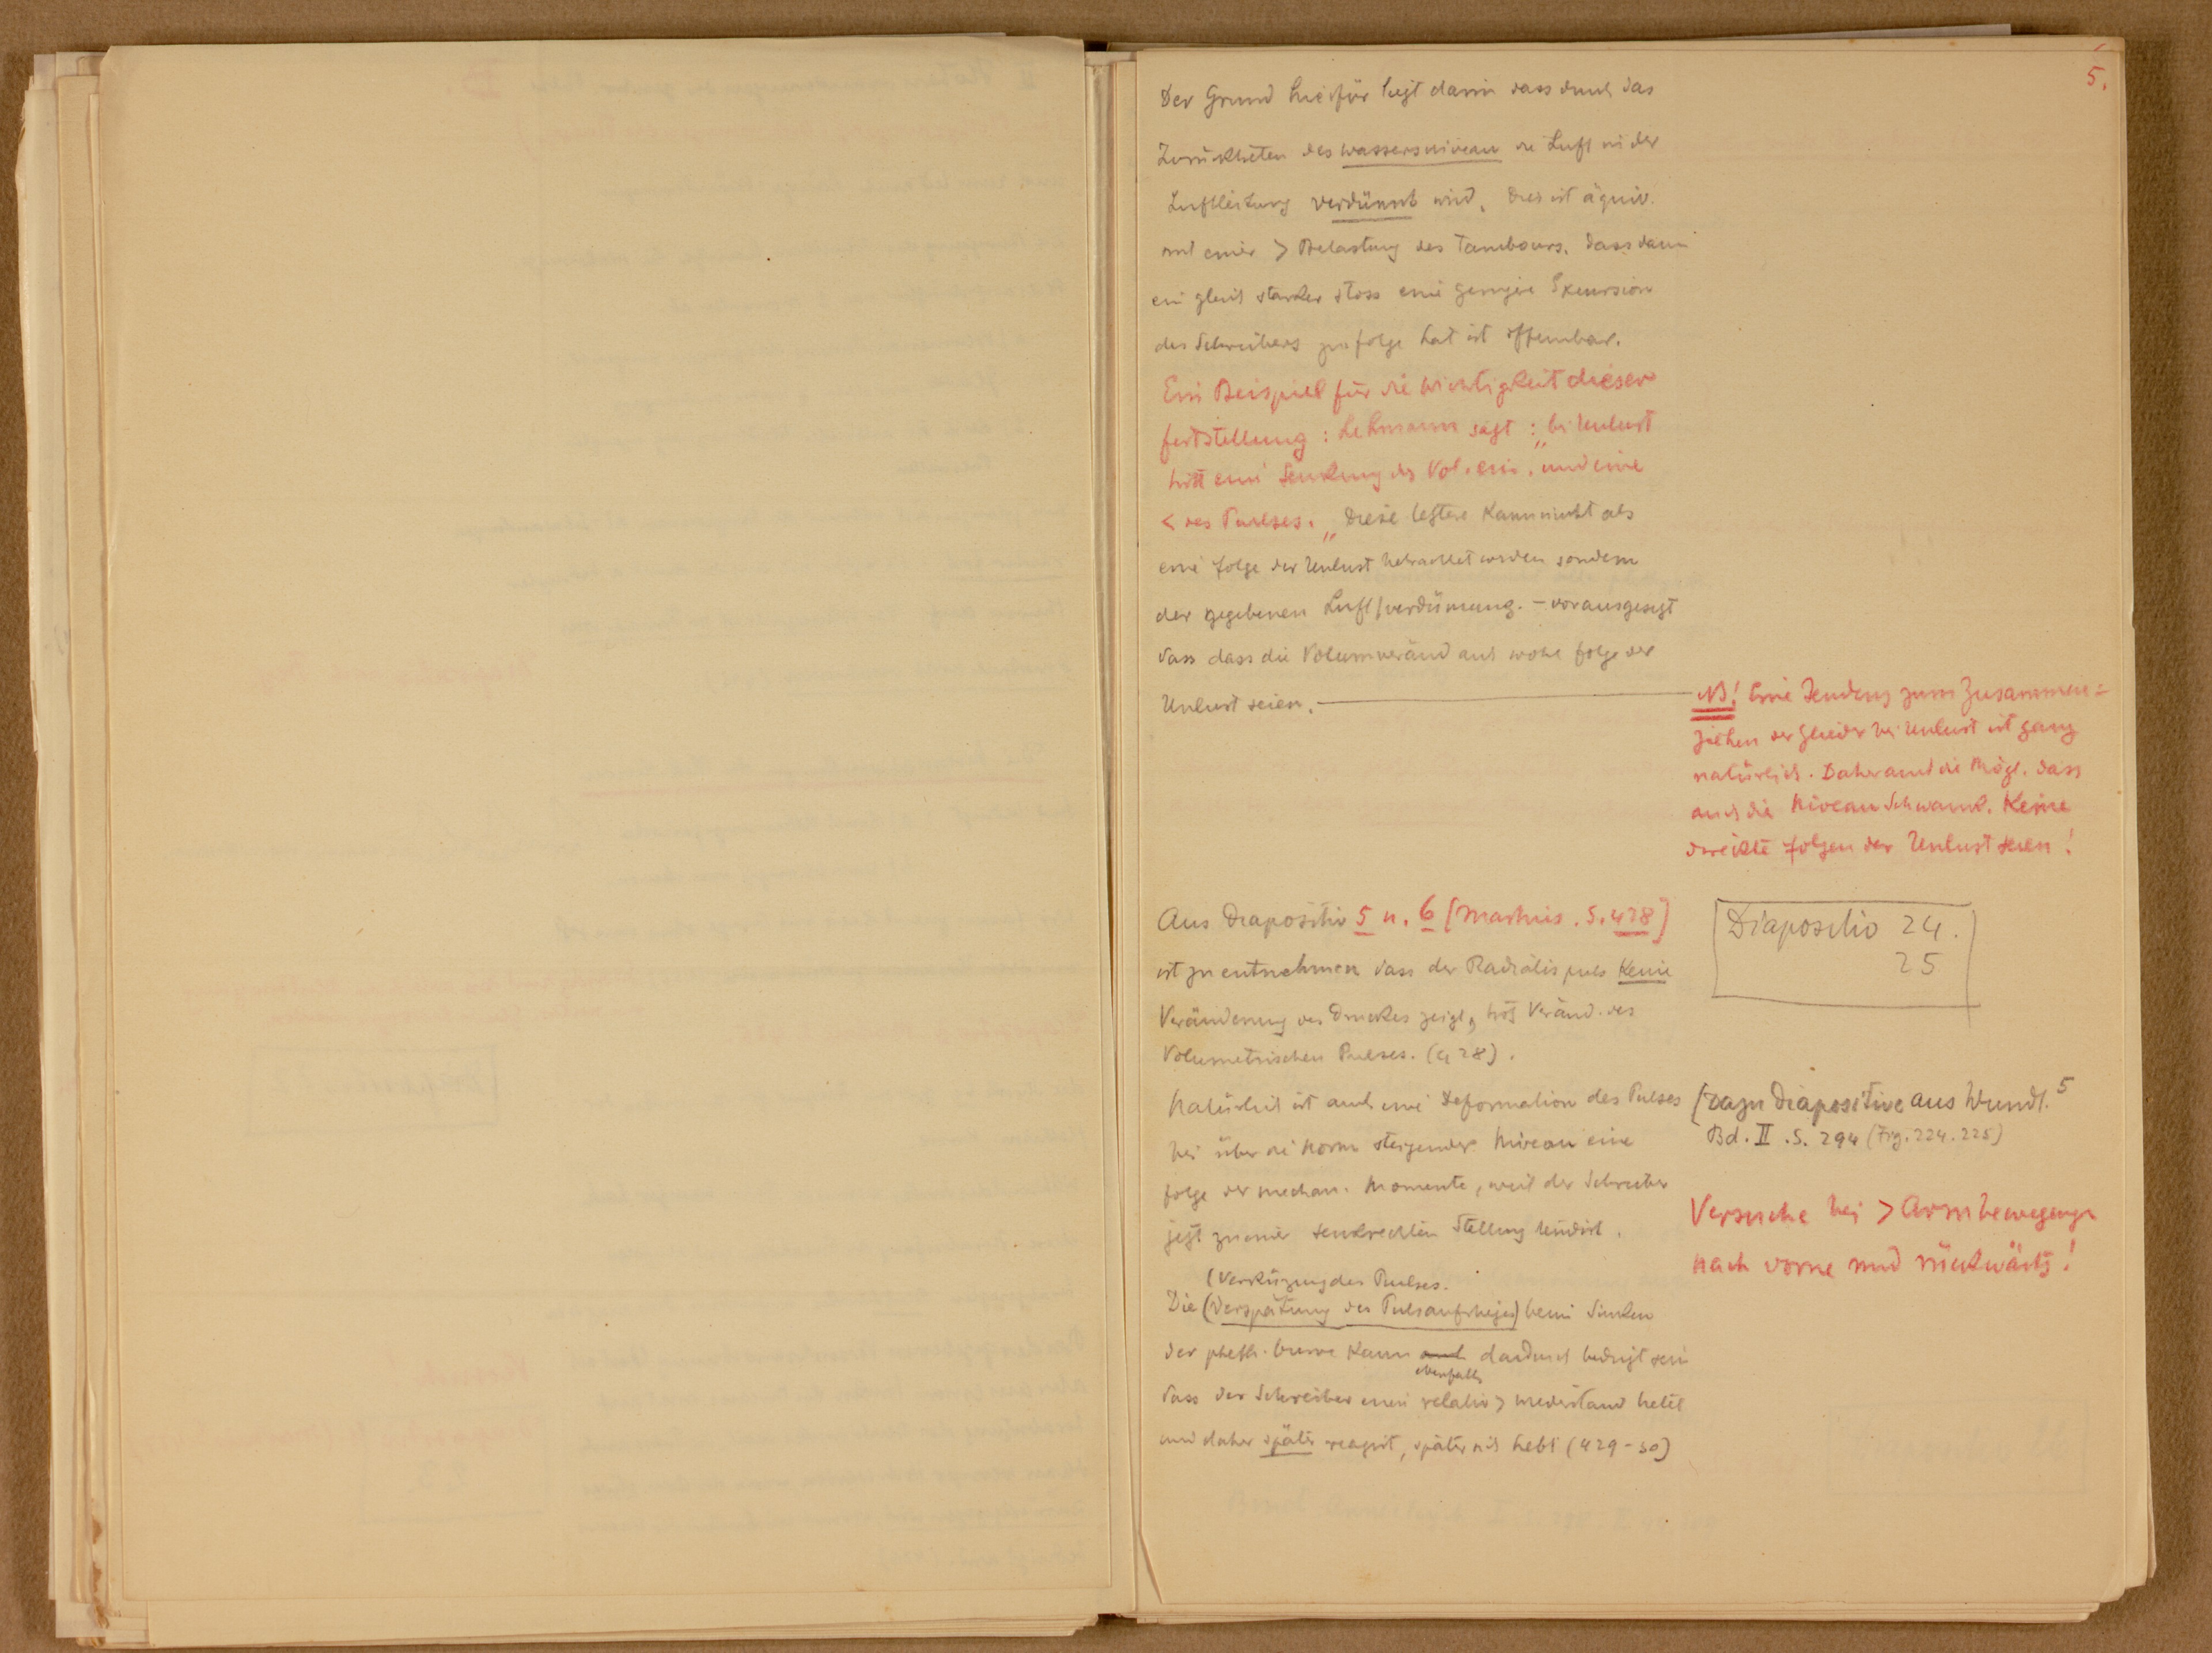 5.
Der Grund hiefür liegt darin dass durch das
Zurücktreten des Wassersniveau die Luft in der
Luftleitung verdünnt wird. Dies ist äquiv.
mit einer > Belastung des Tambours. Dass dann
ein gleich starker Stoss eine geringere Exkursion
des Schreibers zufolge hat ist offenbar.
Ein Beispiel für die Wichtigkeit dieser
Feststellung: Lehmann sagt: „bei Unlust
tritt eine Senkung des Vol. ein." und eine
< des Pulses. „ Diese letztere kann nicht als
eine Folge der Unlust betrachtet werden sondern
der gegebenen Luftverdünnung. – vorausgesezt
dass dass die Volumveränd auch wohl Folge der
Unlust seien.
NB! Eine Tendenz zum Zusammen=
ziehen der Glieder bei Unlust ist ganz
natürlich. Daher auch die Mögl. dass
auch die Niveau Schwank. Keine
direkte Folgen der Unlust seien!
Aus Diapositiv 5 u. 6 [Martius. S. 428]
ist zu entnehmen dass der Radialis puls Keine
Veränderung des Druckes zeigt, trotz Veränd. des
Volumetrischen Pulses. (428).
Diapositiv 24.
25
Natürlich ist auch eine Deformation des Pulses
bei über die Norm steigender Niveau eine
Folge der mechan. Momente, weil der Schreiber
jetzt zu einer senkrechten Stellung tendirt.
(dazu Diapositive aus Wundt.5
Bd. II. S. 294 (Fig. 224. 225)
Versuche bei > Armbewegungen
nach vorne und rückwärts!
(Verkürzung des Pulses.
Die (Verspätung des Pulsanstieges) beim Sinken
der pleth. Curve Kann auch dardurch bedingt sein
ebenfalls
dass der Schreiber einen relativ > wiederstand hetet
und daher später reagirt, später sich hebt (429-30)